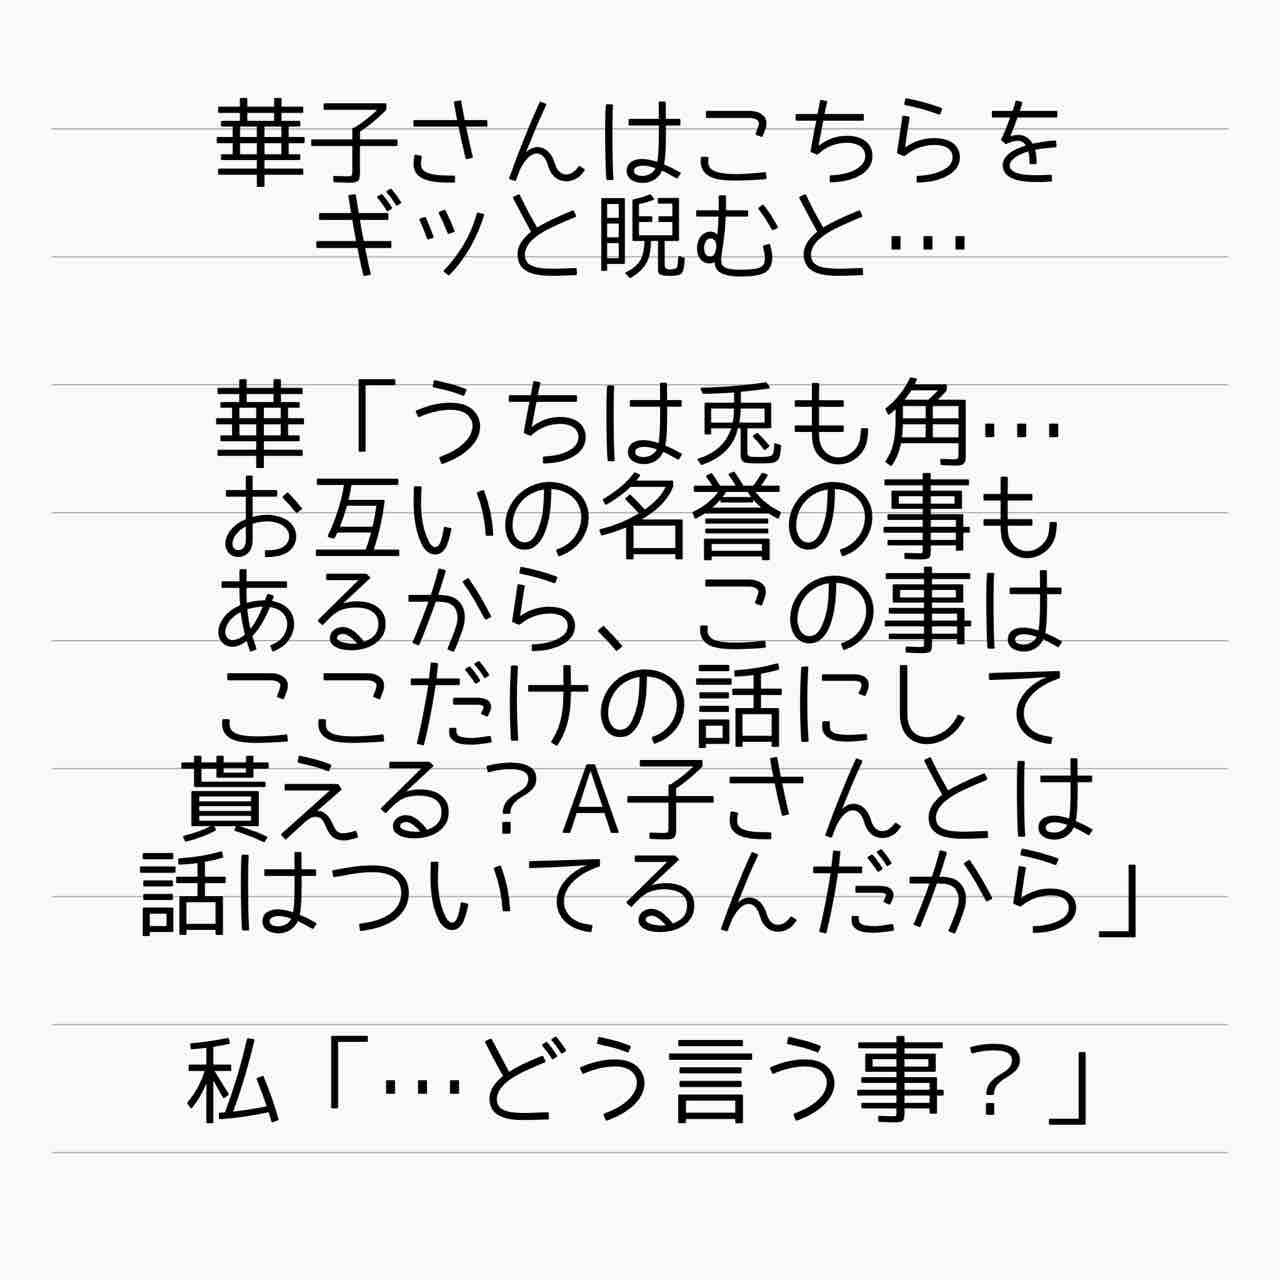 華子さんはこちらを
ギッと睨むと…
華「うちは兎も角…
お互いの名誉の事も
あるから、この事は
ここだけの話にして
貰える？A子さんとは
話はついてるんだから」
私「…どう言う事？」